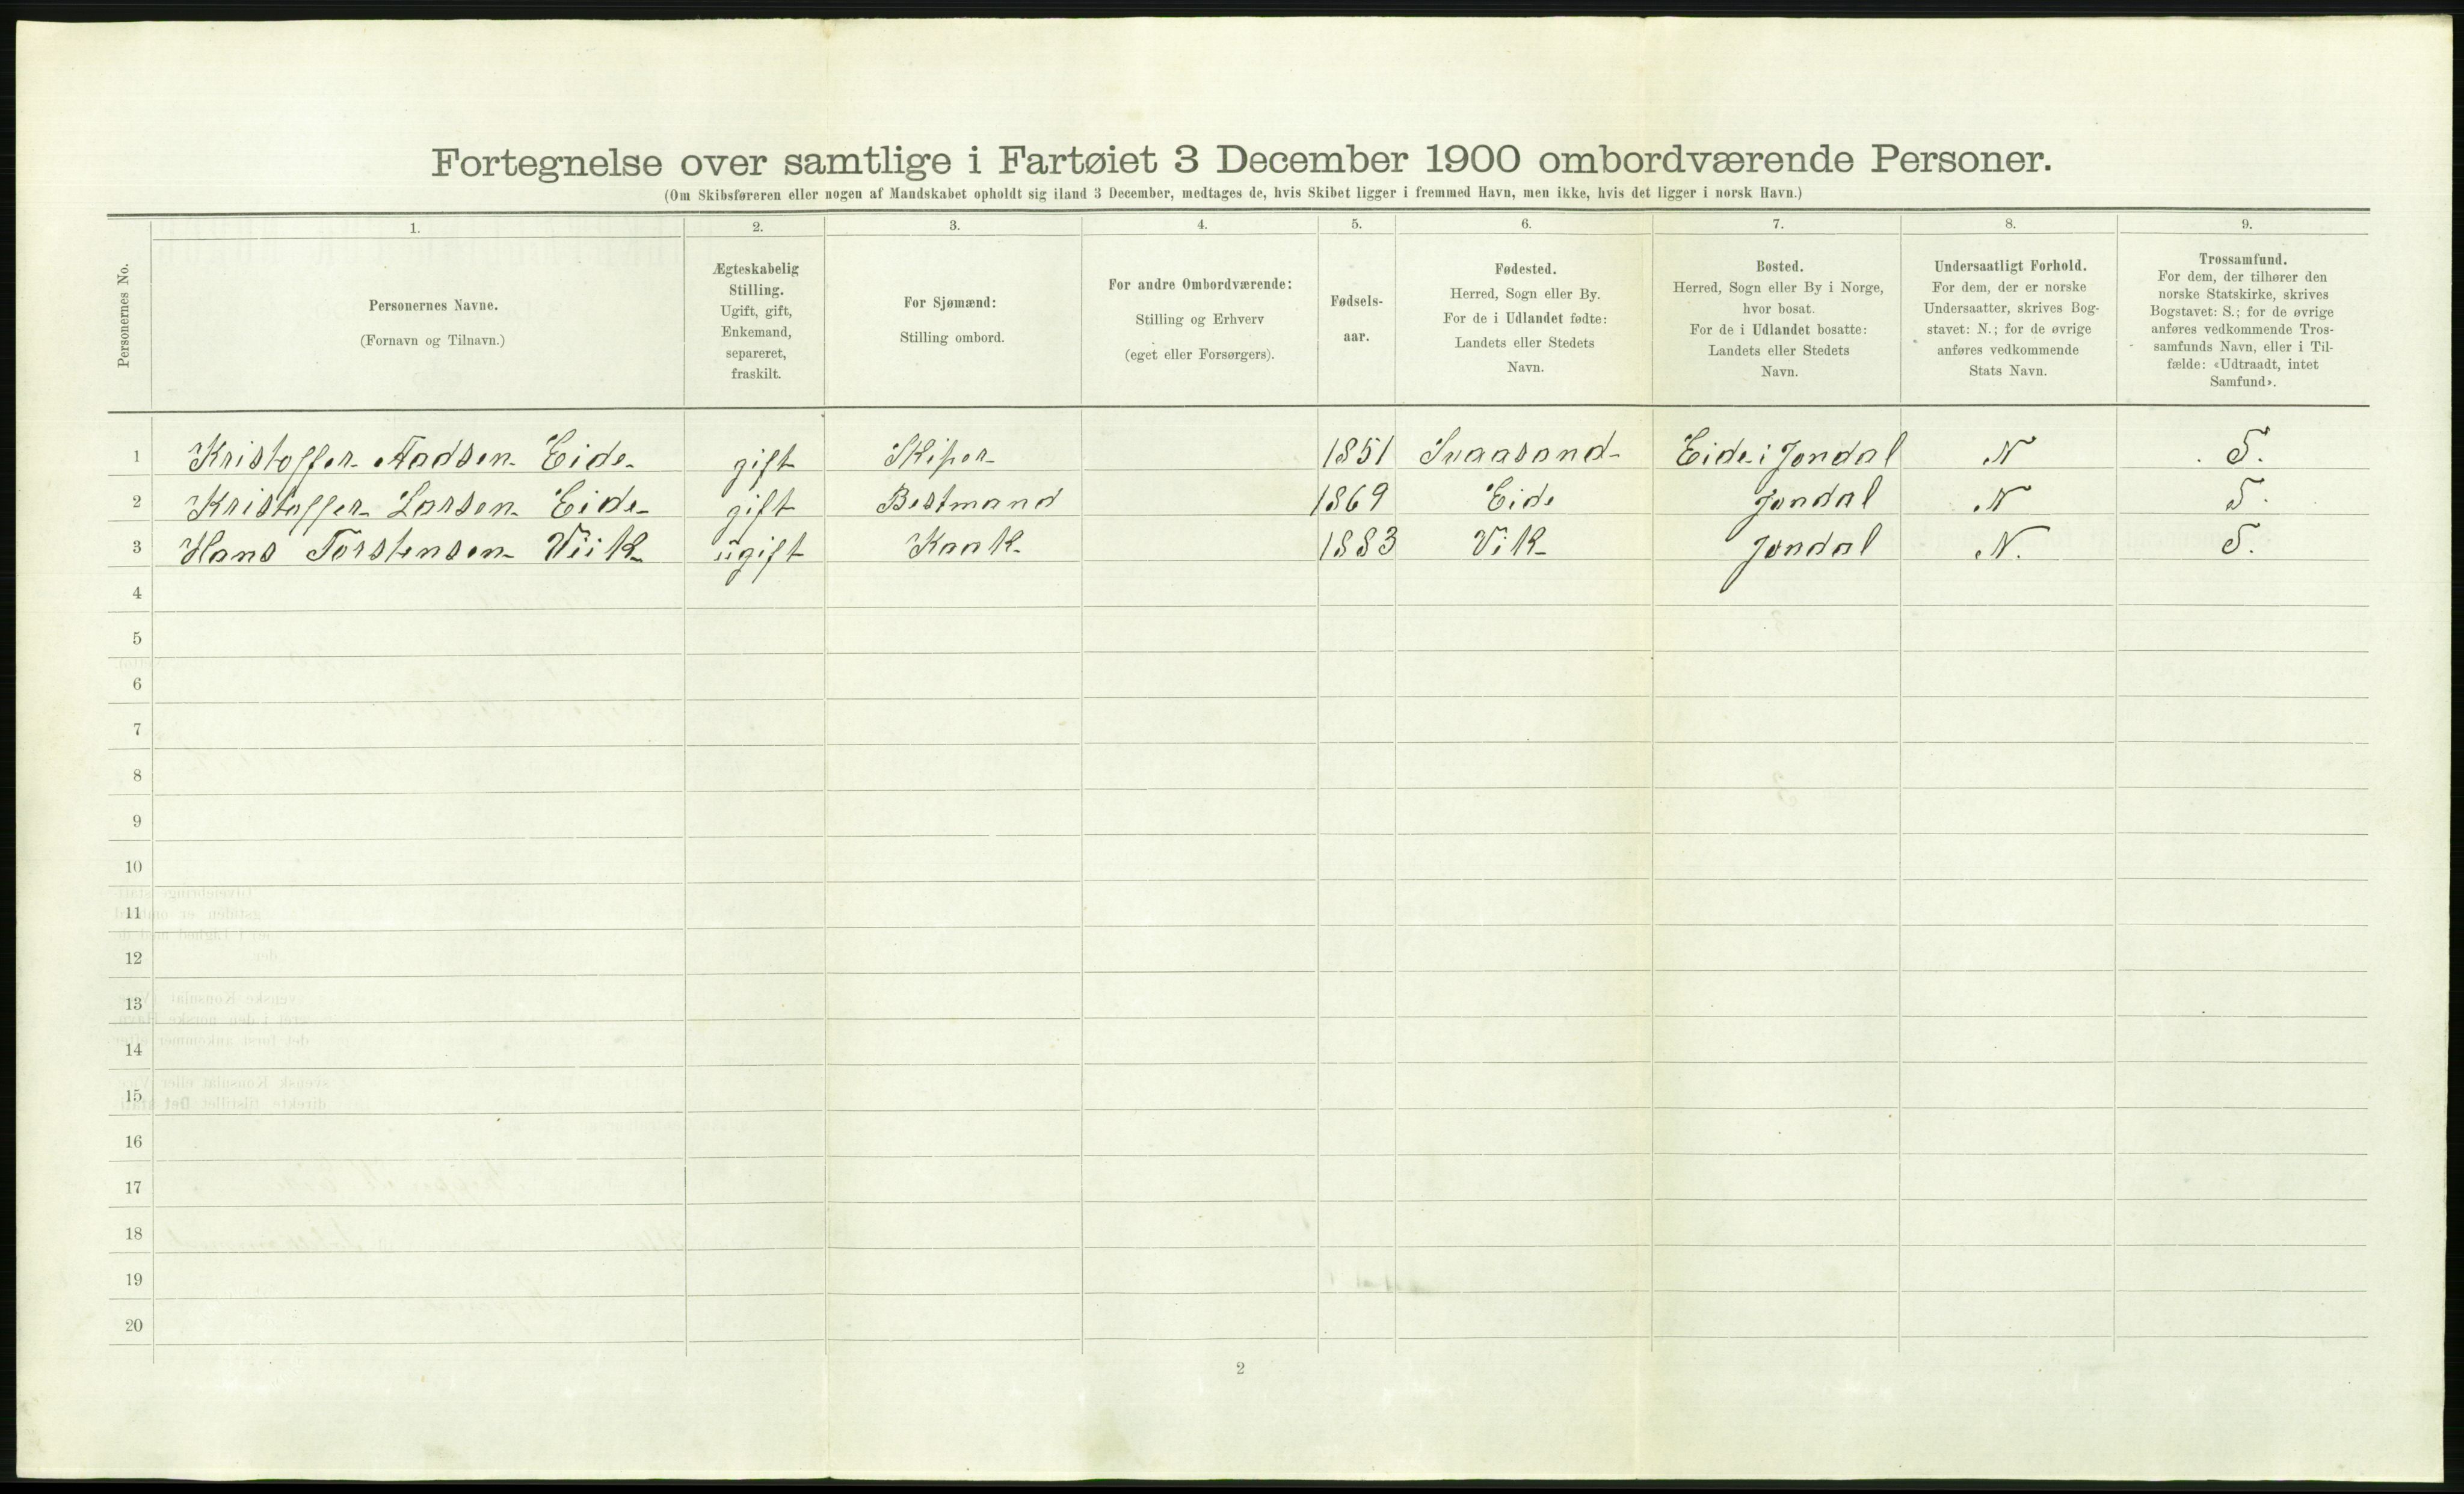 Fortegnelse over samtlige i Fartøiet 3 December 1900 ombordværende Personer.
(Om Skibsføreren eller nogen af Mandskabet opholdt sig iland 3 December, medtages de, hvis Skibet ligger i fremmed Havn, men ikke, hvis det ligger i norsk Havn.)
Personernes No.
1. 2. 3. 4. 5. 6. 7. 8. 9.
Personernes Navne.
(Fornavn og Tilnavn.)
Ægteskabelig
Stilling.
Ugift, gift,
Enkemand,
separeret,
fraskilt.
For Sjømænd:
Stilling ombord.
For andre Ombordværende:
Stilling og Erhverv
(eget eller Forsørgers).
Fødsels-
aar.
Fødested.
Herred, Sogn eller By.
For de i Udlandet fødte:
Landets eller Stedets
Navn.
Bosted.
Herred, Sogn eller By i Norge,
hvor bosat.
For de i Udlandet bosatte:
Landets eller Stedets
Navn.
Undersaatligt Forhold.
For dem, der er norske
Undersaatter, skrives Bog-
stavet: N.; for de øvrige
anføres vedkommende
Stats Navn.
Trossamfund.
For dem, der tilhører den
norske Statskirke, skrives
Bogstavet: S.; for de øvrige
anføres vedkommende Tros-
samfunds Navn, eller i Til-
fælde: «Udtraadt, intet
Samfund».
1 Kristoffer Aadsen Eide gift Skiper 1851 Svaasand Eide i Jondal N S.
2 Kristoffer Larsen Eide gift Bestmand 1869 Eide Jondal N S.
3 Hans Torstensen Viik ugift Kaak 1883 Vik Jondal N. S.
4
5
6
7
8
9
10
11
12
13
14
15
16
17
18
19
20
2